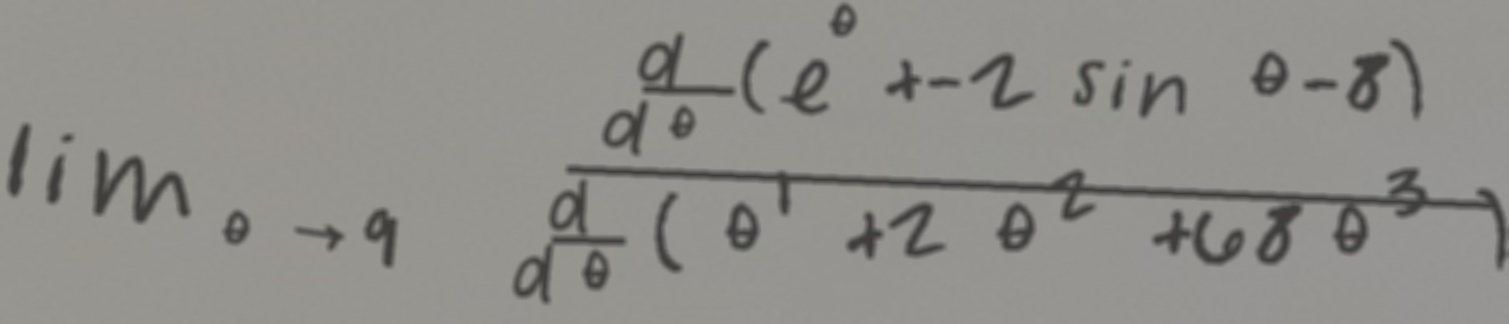 \lim_{\theta \to 9} \frac{\frac{d}{d\theta}(e^{\theta} + -2 \sin \theta - 8)}{\frac{d}{d\theta}(\theta^{1} + 2\theta^{2} + 68\theta^{3})}